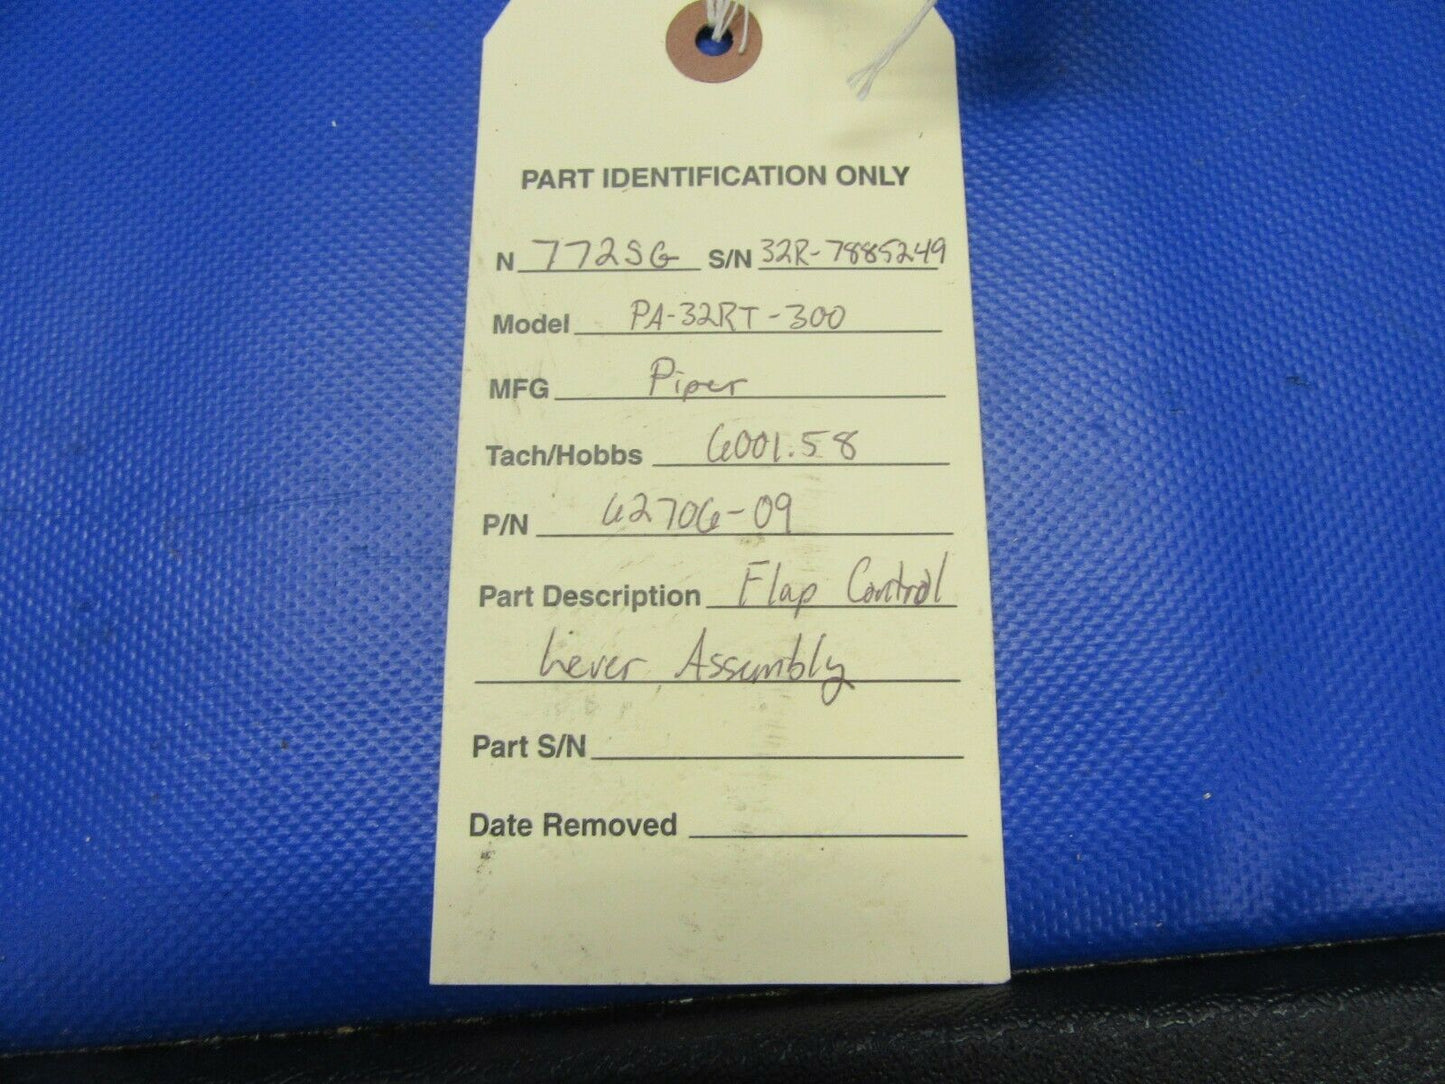 PART IDENTIFICATION ONLY
N 772SG S/N 32R-7885249
Model PA-32RT-300
MFG Piper
Tach/Hobbs 6001.58
P/N 62706-09
Part Description Flap Control
Lever Assembly
Part S/N
Date Removed